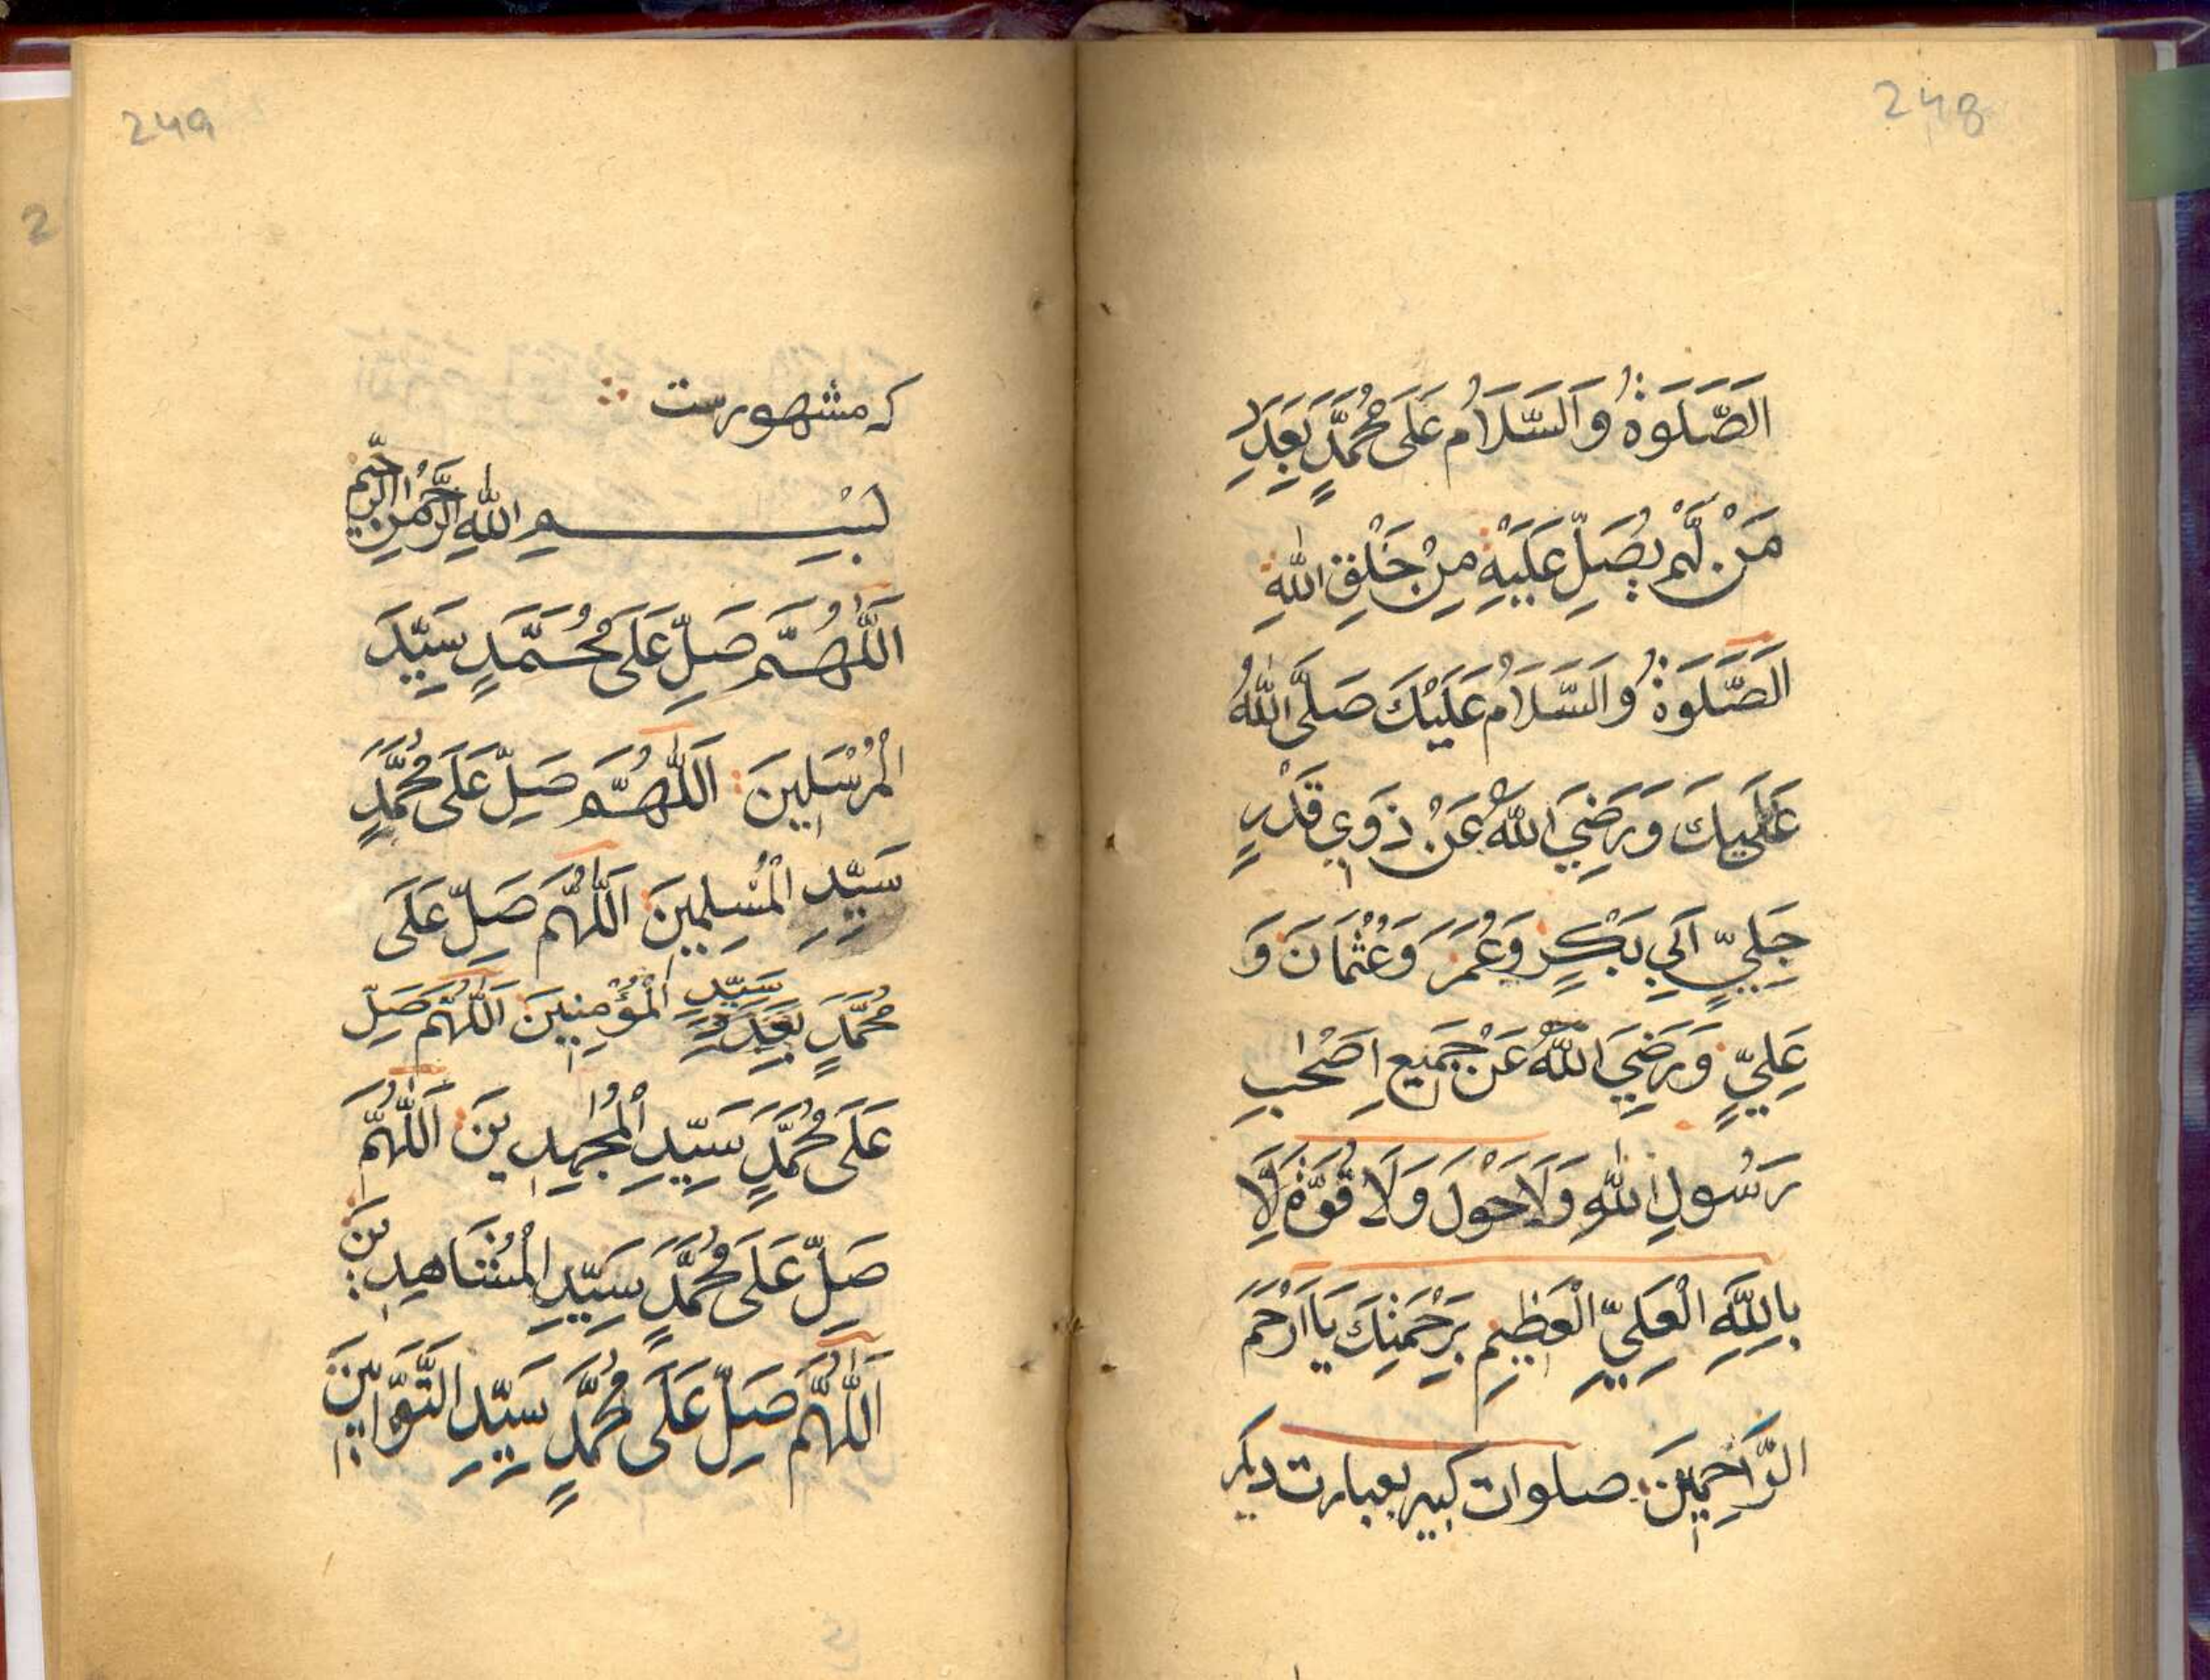 248
الصَّلَوةُ وَالسَّلَامُ عَلَى مُحَمَّدٍ بَعِدَدِ
مَنْ لَّمْ يُصَلِّ عَلَيْهِ مِنْ خَلْقِ اللهِ
اَلصَّلَوةُ وَالسَّلَامُ عَلَيْكَ صَلَّى اللهُ
عَلَيكَ وَرَضِيَ اللهُ عَنْ ذَوِي قَدْرٍ
جَلِيٍّ اَبِي بَكْرٍ وَعُمَرَ وَعُثْمَانَ وَ
عَلِيٍّ وَرَضِيَ اللهُ عَنْ جَمِيعِ اَصْحٰبِ
رَسُولِ اللهِ وَلَا حَوْلَ وَلَا قُوَّةَ اِلَّا
بِاللَّهِ الْعَلِيِّ الْعَظِيمِ بِرَحْمَتِكَ يَا اَرْحَمَ
الرَّاحِمِينَ صلوات کبیر بعبارت دیکر
249
که مشهورست
بِسْمِ اللهِ الرَّحْمٰنِ الرَّحِيْمِ
اَللّٰهُمَّ صَلِّ عَلَى مُحَمَّدٍ سَيِّدِ
الْمُرْسَلِينَ اَللّٰهُمَّ صَلِّ عَلَى مُحَمَّدٍ
سَيِّدِ الْمُسْلِمِينَ اَللّٰهُمَّ صَلِّ عَلَى
مُحَمَّدٍ سَيِّدِ الْمُؤْمِنِينَ اَللّٰهُمَّ صَلِّ
عَلَى مُحَمَّدٍ سَيِّدِ الْمُجٰهِدِينَ اَللّٰهُمَّ
صَلِّ عَلَى مُحَمَّدٍ سَيِّدِ الْمُشَاهِدِينَ
اَللّٰهُمَّ صَلِّ عَلَى مُحَمَّدٍ سَيِّدِ التَّوَّابِينَ